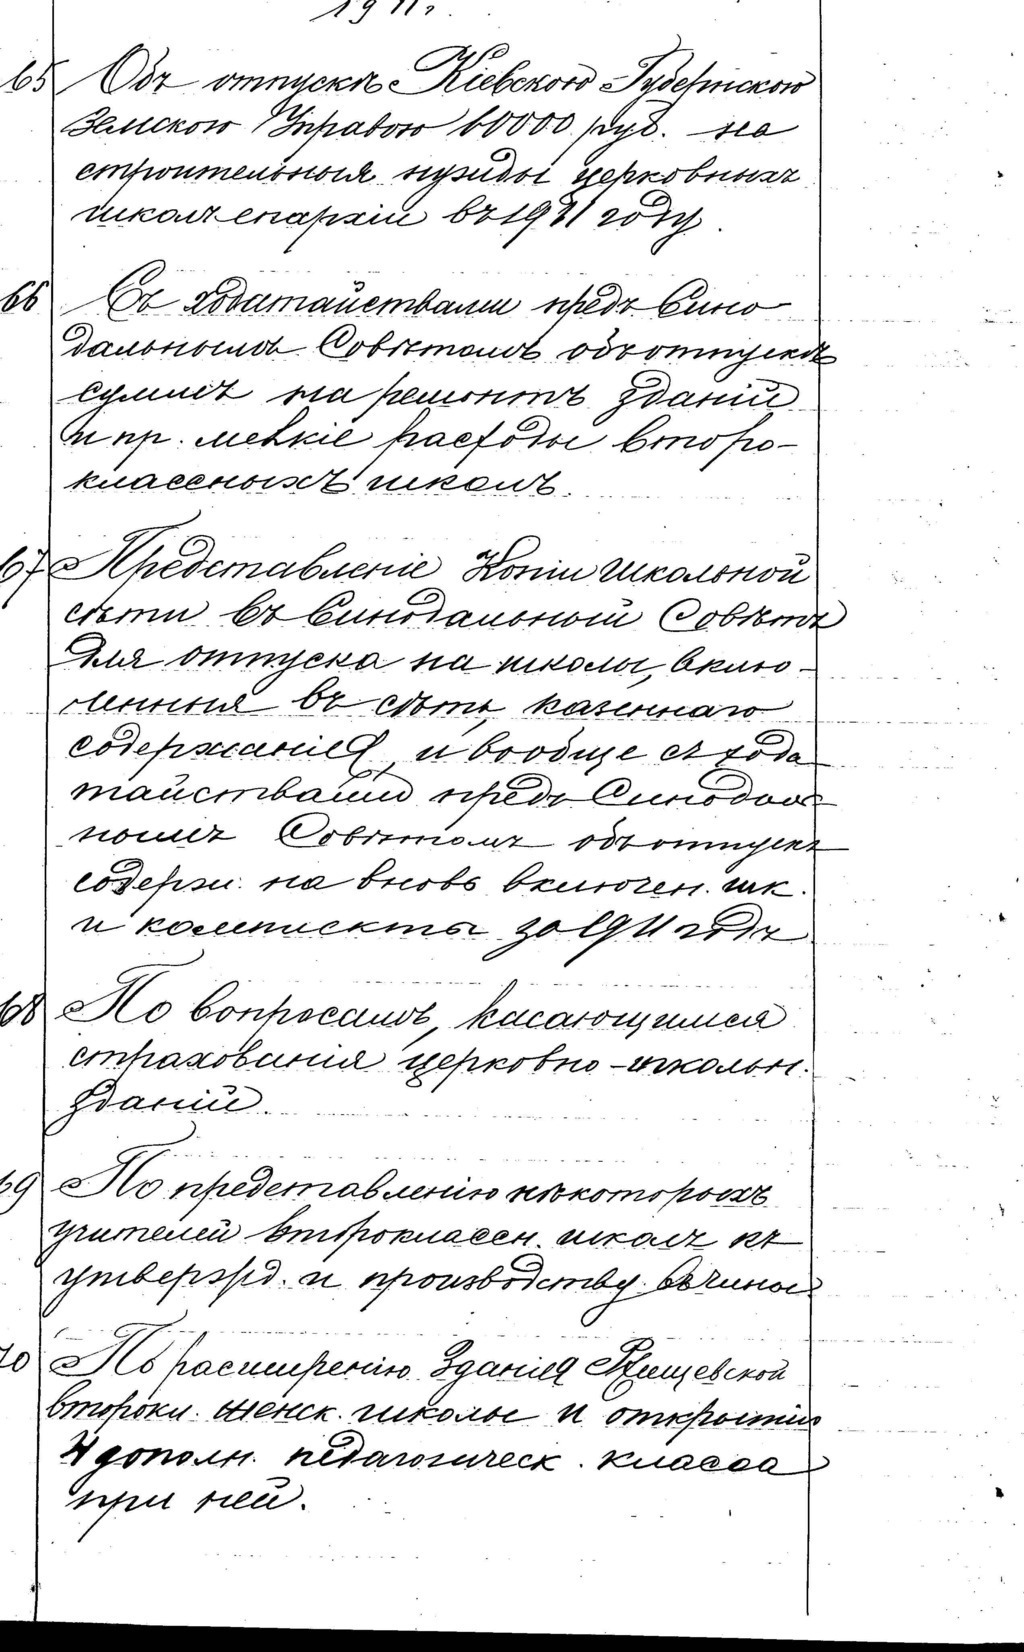 1911 г.
65 Объ отпускѣ Кіевскою Губернскою
Земскою Управою 60000 руб. на
строительныя нужды церковныхъ
школъ епархіи въ 1911 году.
66 Съ ходатайствами предъ Сино-
дальнымъ Совѣтомъ объ отпускѣ
суммъ на ремонтъ зданій
и пр. мелкіе расходы второ-
классныхъ школъ.
67 Представленіе копіи школьной
сѣти въ Синодальный Совѣтъ
для отпуска на школы, вклю-
ченныя въ сѣть, казеннаго
содержанія, и вообще съ хода
тайствами предъ Синодаль
нымъ Совѣтомъ объ отпускѣ
содерж. на вновь включен. шк.
и комплекты за 1911 годъ
68 По вопросамъ, касающимся
страхованія церковно-школьн.
зданій.
69 По представленію нѣкоторыхъ
учителей второклассн. школъ къ
утвержд. и производству въ чины
70 По расширенію зданія Ржищевской
второкл. женск. школы и открытію
дополн. педагогическ. класса
при ней.